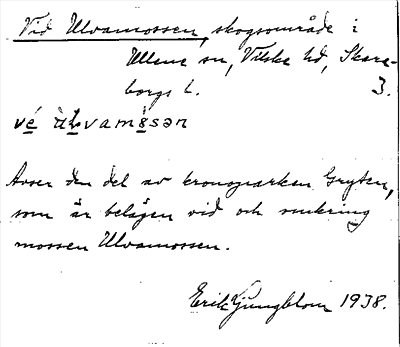 Vid Ulvamossen, skogsområde i
Ullene sn, Vilske hd, Skara-
borgs l. 3.
vé ùlvamòsən
Avser den del av kronoparken Gryten,
som är belägen vid och omkring
mossen Ulvamossen.
Erik Ljungblom 1938.